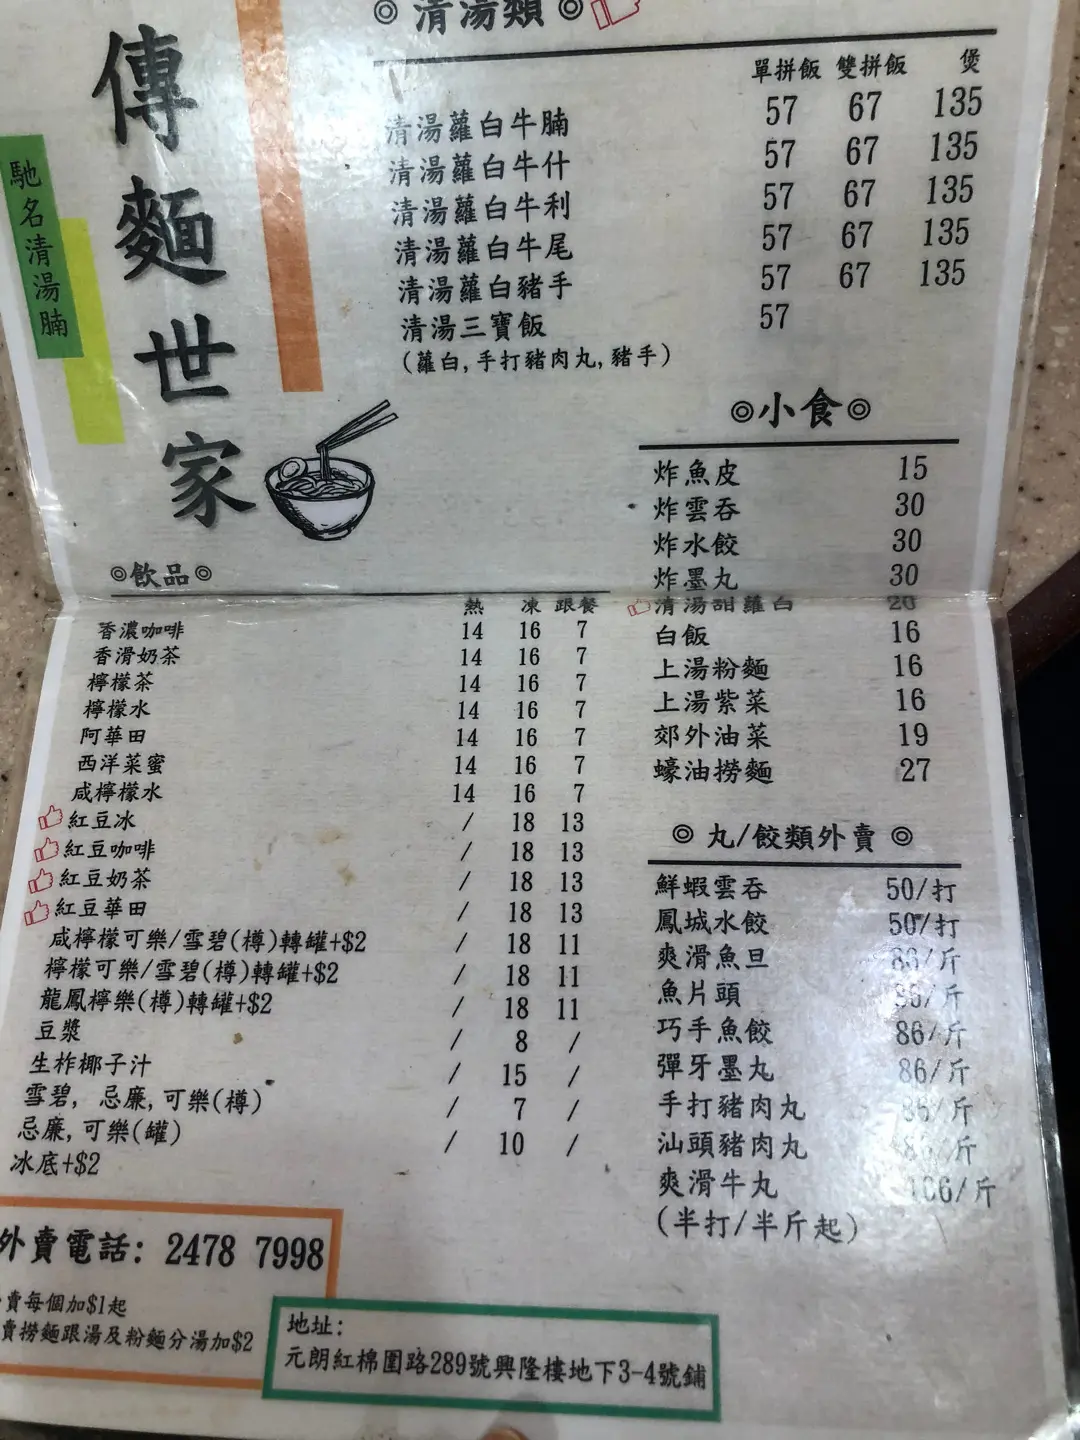 ◎ 清湯類 ◎
傳麵世家
馳名清湯腩
單拼飯 雙拼飯 煲
清湯蘿白牛腩 57 67 135
清湯蘿白牛什 57 67 135
清湯蘿白牛利 57 67 135
清湯蘿白牛尾 57 67 135
清湯蘿白豬手 57 67 135
清湯三寶飯 57
(蘿白,手打豬肉丸,豬手)
◎小食◎
炸魚皮 15
炸雲吞 30
炸水餃 30
炸墨丸 30
清湯甜蘿白 20
白飯 16
上湯粉麵 16
上湯紫菜 16
郊外油菜 19
蠔油撈麵 27
◎飲品◎
熱 凍 跟餐
香濃咖啡 14 16 7
香滑奶茶 14 16 7
檸檬茶 14 16 7
檸檬水 14 16 7
阿華田 14 16 7
西洋菜蜜 14 16 7
咸檸檬水 14 16 7
紅豆冰 / 18 13
紅豆咖啡 / 18 13
紅豆奶茶 / 18 13
紅豆華田 / 18 13
咸檸檬可樂/雪碧(樽)轉罐+$2 / 18 11
檸檬可樂/雪碧(樽)轉罐+$2 / 18 11
龍鳳檸樂(樽)轉罐+$2 / 18 11
豆漿 / 8 /
生柞椰子汁 / 15 /
雪碧, 忌廉,可樂(樽) / 7 /
忌廉,可樂(罐) / 10 /
冰底+$2
◎ 丸/餃類外賣 ◎
鮮蝦雲吞 50/打
鳳城水餃 50/打
爽滑魚旦 /斤
魚片頭 /斤
巧手魚餃 86/斤
彈牙墨丸 86/斤
手打豬肉丸 86/斤
汕頭豬肉丸 /斤
爽滑牛丸 /斤
(半打/半斤起)
外賣電話: 2478 7998
賣每個加$1起
賣撈麵跟湯及粉麵分湯加$2
地址:
元朗紅棉圍路289號興隆樓地下3-4號鋪